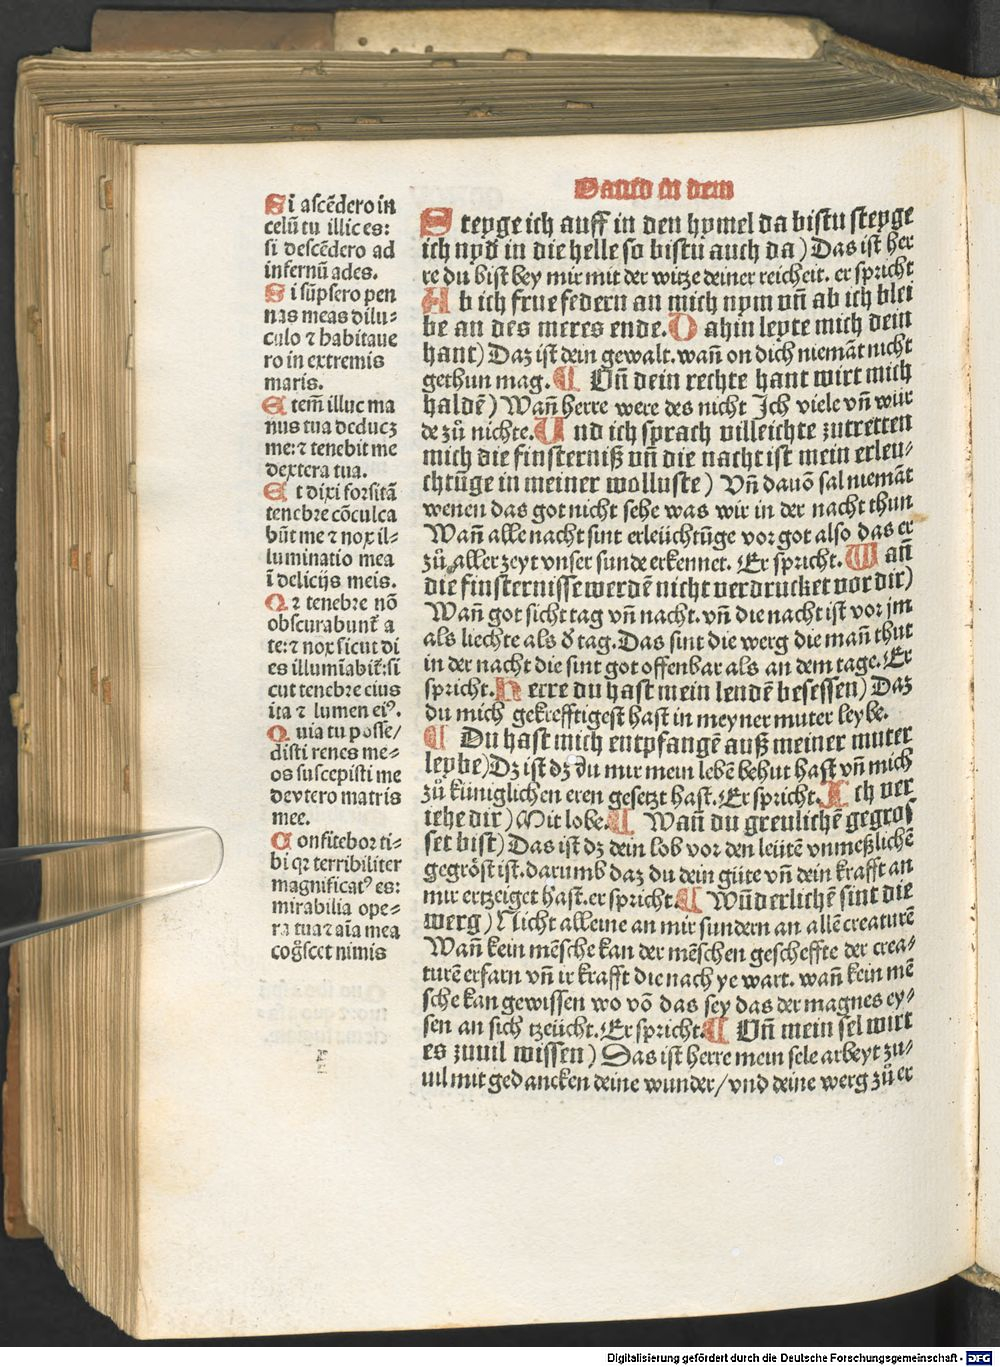 Dauid in dem
Si ascēdero in
celū tu illic es:
si descēdero ad
infernū ades.
Si sūpsero pen
nas meas dilu⸗
culo ⁊ habitaue
ro in extremis
maris.
Etem̄ illuc ma
nus tua deducꝫ
me:⁊ tenebit me
dextera tua.
Et dixi forsitā
tenebre cōculca
būt me ⁊ nox il⸗
luminatio mea
ī delicijs meis.
Qꝛ tenebre nō
obscurabunt᷑ a
te:⁊ nox sicut di
es illumīabit᷑:si
cut tenebre eius
ita ⁊ lumen eiꝰ.
Quia tu posse/
disti renes me⸗
os suscepisti me
de vtero matris
mee.
Confitebor ti⸗
bi qꝛ terribiliter
magnificatꝰ es:
mirabilia ope⸗
ra tua ⁊ aīa mea
cog̃scet nimis
Steyge ich auff in den hymel da bistu steyge
ich nyd̄ in die helle so bistu auch da) Das ist her
re du bist bey mir mit der witze deiner reicheit. er spricht
Ab ich frue federn an mich nym vn̄ ab ich blei
be an des meres ende. Dahin leyte mich dein
hant) Daz ist dein gewalt. wañ on dich niemāt nicht
gethun mag. ¶ Vn̄ dein rechte hant wirt mich
haldē) Wañ herre were des nicht Ich viele vn̄ wur
de zů nichte. Und ich sprach villeichte zutretten
mich die finsterniß vn̄ die nacht ist mein erleu⸗
chtūge in meiner wolluste) Vn̄ dauō sal niemāt
wenen das got nicht sehe was wir in der nacht thun
Wañ alle nacht sint erleüchtūge vor got also das er
zů aller zeyt vnser sunde erkennet. Er spricht. Wañ
die finsternisse werdē nicht verdrucket vor dir)
Wañ got sicht tag vn̄ nacht. vn̄ die nacht ist vor jm
als liechte als d̄ tag. Das sint die werg die mañ thut
in der nacht die sint got offenbar als an dem tage. Er
spricht. Herre du hast mein lendē besessen) Daz
du mich gekrefftigest hast in meyner muter leybe.
¶ Du hast mich entpfangē auß meiner muter
leybe) Dz ist dz du mir mein lebē behut hast vn̄ mich
zů küniglichen eren gesetzt hast. Er spricht. Ich ver
iehe dir) Mit lobe. ¶ Wañ du greulichē gegros
set bist) Das ist dz dein lob vor den leütē vnmeßlichē
gegröst ist. darumb daz du dein güte vn̄ dein krafft an
mir ertzeiget hast. er spricht. ¶ Wūderlichē sint die
werg) Nicht alleine an mir sundern an allē creaturē
Wañ kein mēsche kan der mēschen gescheffte der crea⸗
turē erfarn vn̄ ir krafft die nach ye wart. wañ kein mē
sche kan gewissen wo vō das sey das der magnes ey⸗
sen an sich tzeücht. Er spricht. ¶ Vn̄ mein sel wirt
es zuuil wissen) Das ist herre mein sele arbeyt zu⸗
uil mit gedancken deine wunder/vnd deine werg zů er
Digitalisierung gefördert durch die Deutsche Forschungsgemeinschaft - DFG